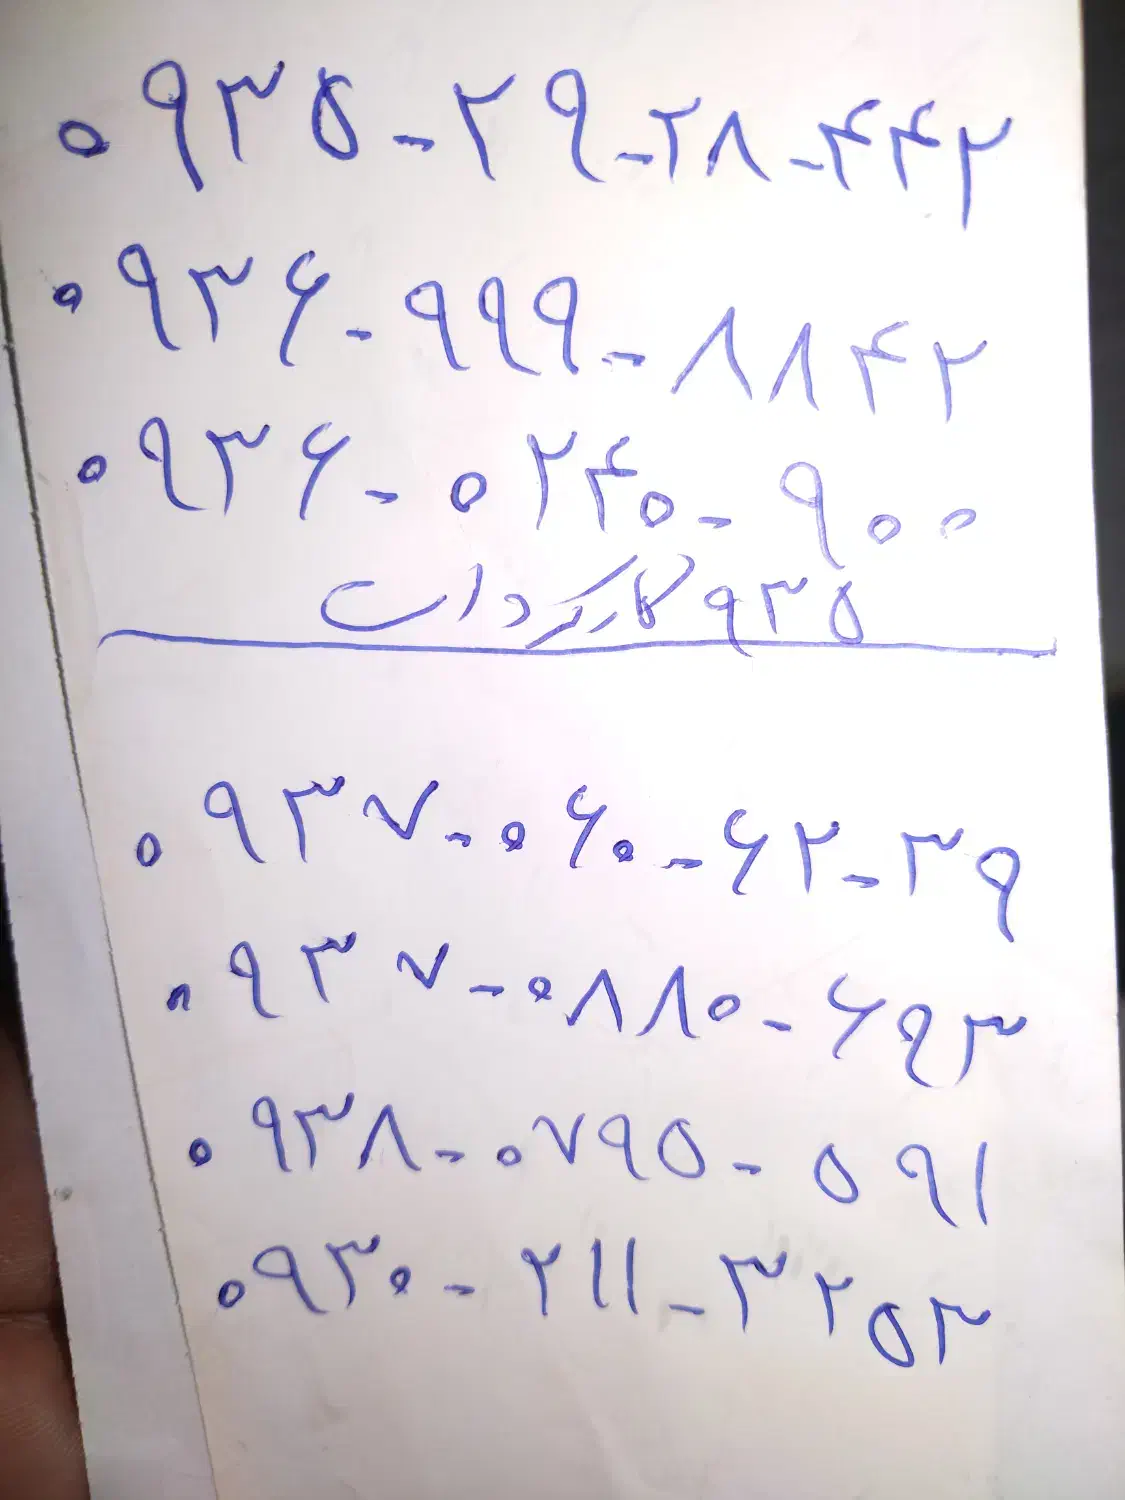 ۰۹۳۵-۲۹-۲۸-۴۴۲
۰۹۳۶-۹۹۹-۸۸۴۲
۰۹۳۶-۰۲۴۰-۹۰۰
۹۳۵ کارکرده است
۰۹۳۷-۰۶۰-۶۲-۳۹
۰۹۳۷-۰۸۸۰-۶۹۳
۰۹۳۸-۰۷۹۵-۵۹۱
۰۹۳۰-۲۱۱-۳۲۵۳